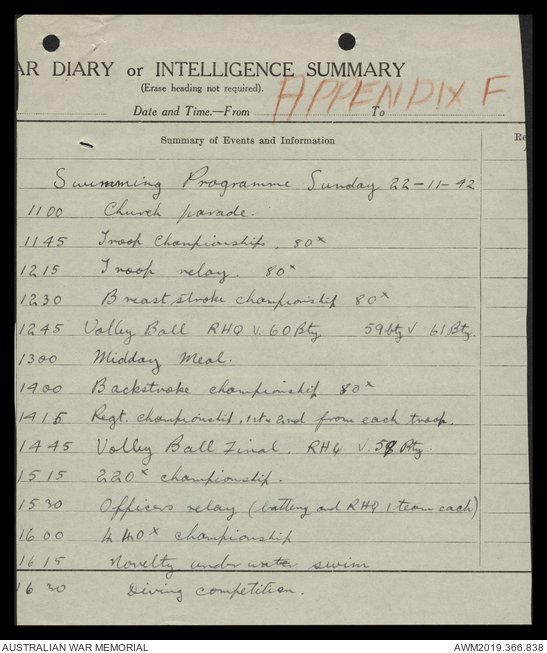 AR DIARY or INTELLIGENCE SUMMARY
(Erase heading not required).
APPENDIX F
Date and Time.—From To
Summary of Events and Information
Re
Swimming Programme Sunday 22-11-42
1100 Church parade.
1145 Troop Championships. 80x
1215 Troop relay. 80x
1230 Breast stroke championship 80x
1245 Volley Ball RHQ v. 60 Bty 59 bty v 61 Bty.
1300 Midday Meal.
1400 Backstroke championship 80x
1415 Regt. championship, 1st & 2nd from each troop.
1445 Volley Ball Final. RHQ v. 59 Bty.
1515 220x championship.
1530 Officers relay (battery and RHQ 1 team each)
1600 440x championship
1615 Novelty under water swim
1630 Diving competition.
AUSTRALIAN WAR MEMORIAL
AWM2019.366.838